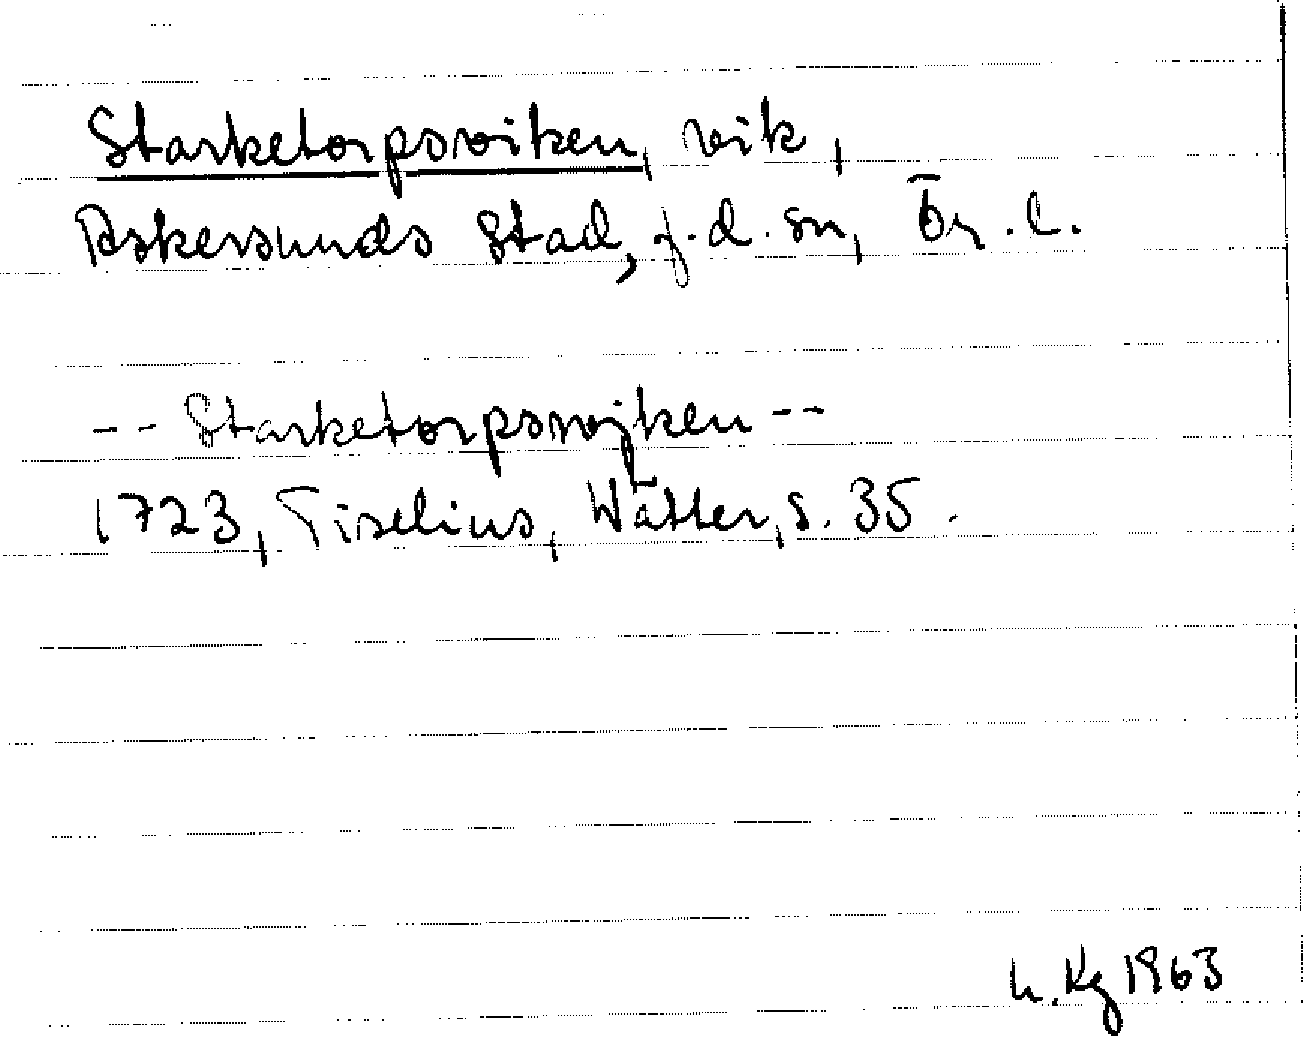 Starketorpsviken, vik,
Askersunds stad, f.d. sn, Ör. l.
-- Starketorpswijken --
1723, Tiselius, Wätter, s. 35.
h. Kg 1963